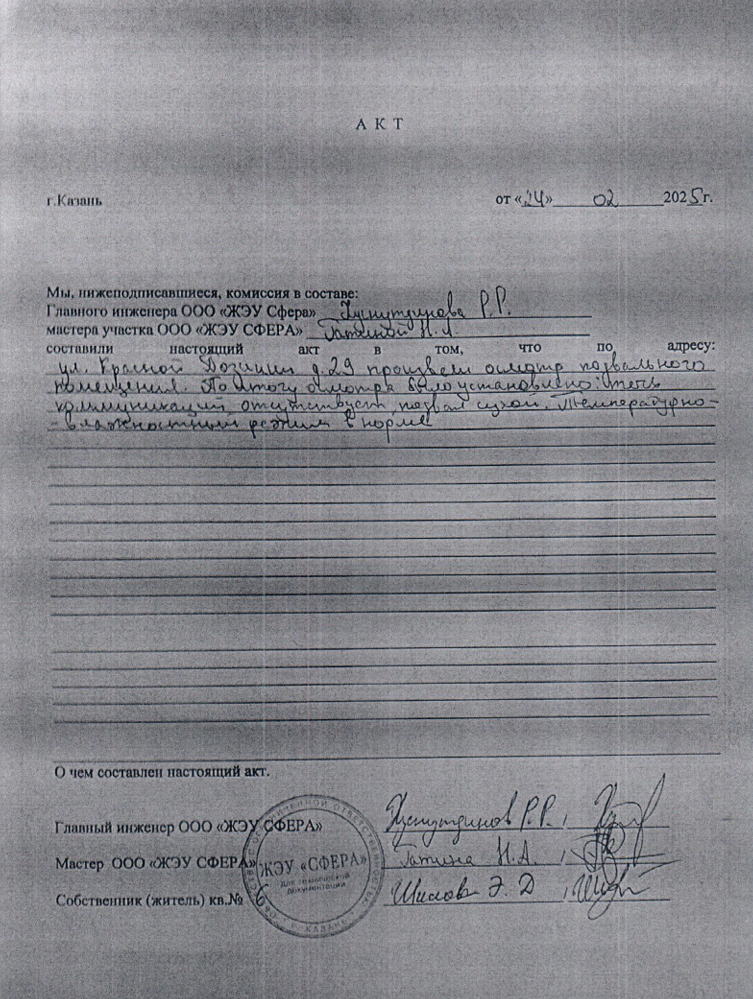 А К Т
г.Казань от «24» 02 2025 г.
Мы, нижеподписавшиеся, комиссия в составе:
Главного инженера ООО «ЖЭУ Сфера» Хуснутдинова Р.Р.
мастера участка ООО «ЖЭУ СФЕРА» Гатиной Н.А.
составили настоящий акт в том, что по адресу:
ул. Красной Позиции д.29 произвели осмотр подвального
помещения. По итогу осмотра было установлено: течь
коммуникаций отсутствует, подвал сухой. Температурно-
- влажностный режим в норме
О чем составлен настоящий акт.
Главный инженер ООО «ЖЭУ СФЕРА» Хуснутдинов Р.Р.
Мастер ООО «ЖЭУ СФЕРА» Гатина Н.А.
Собственник (житель) кв.№ Э. Д
ЖЭУ «СФЕРА»
для технической
документации